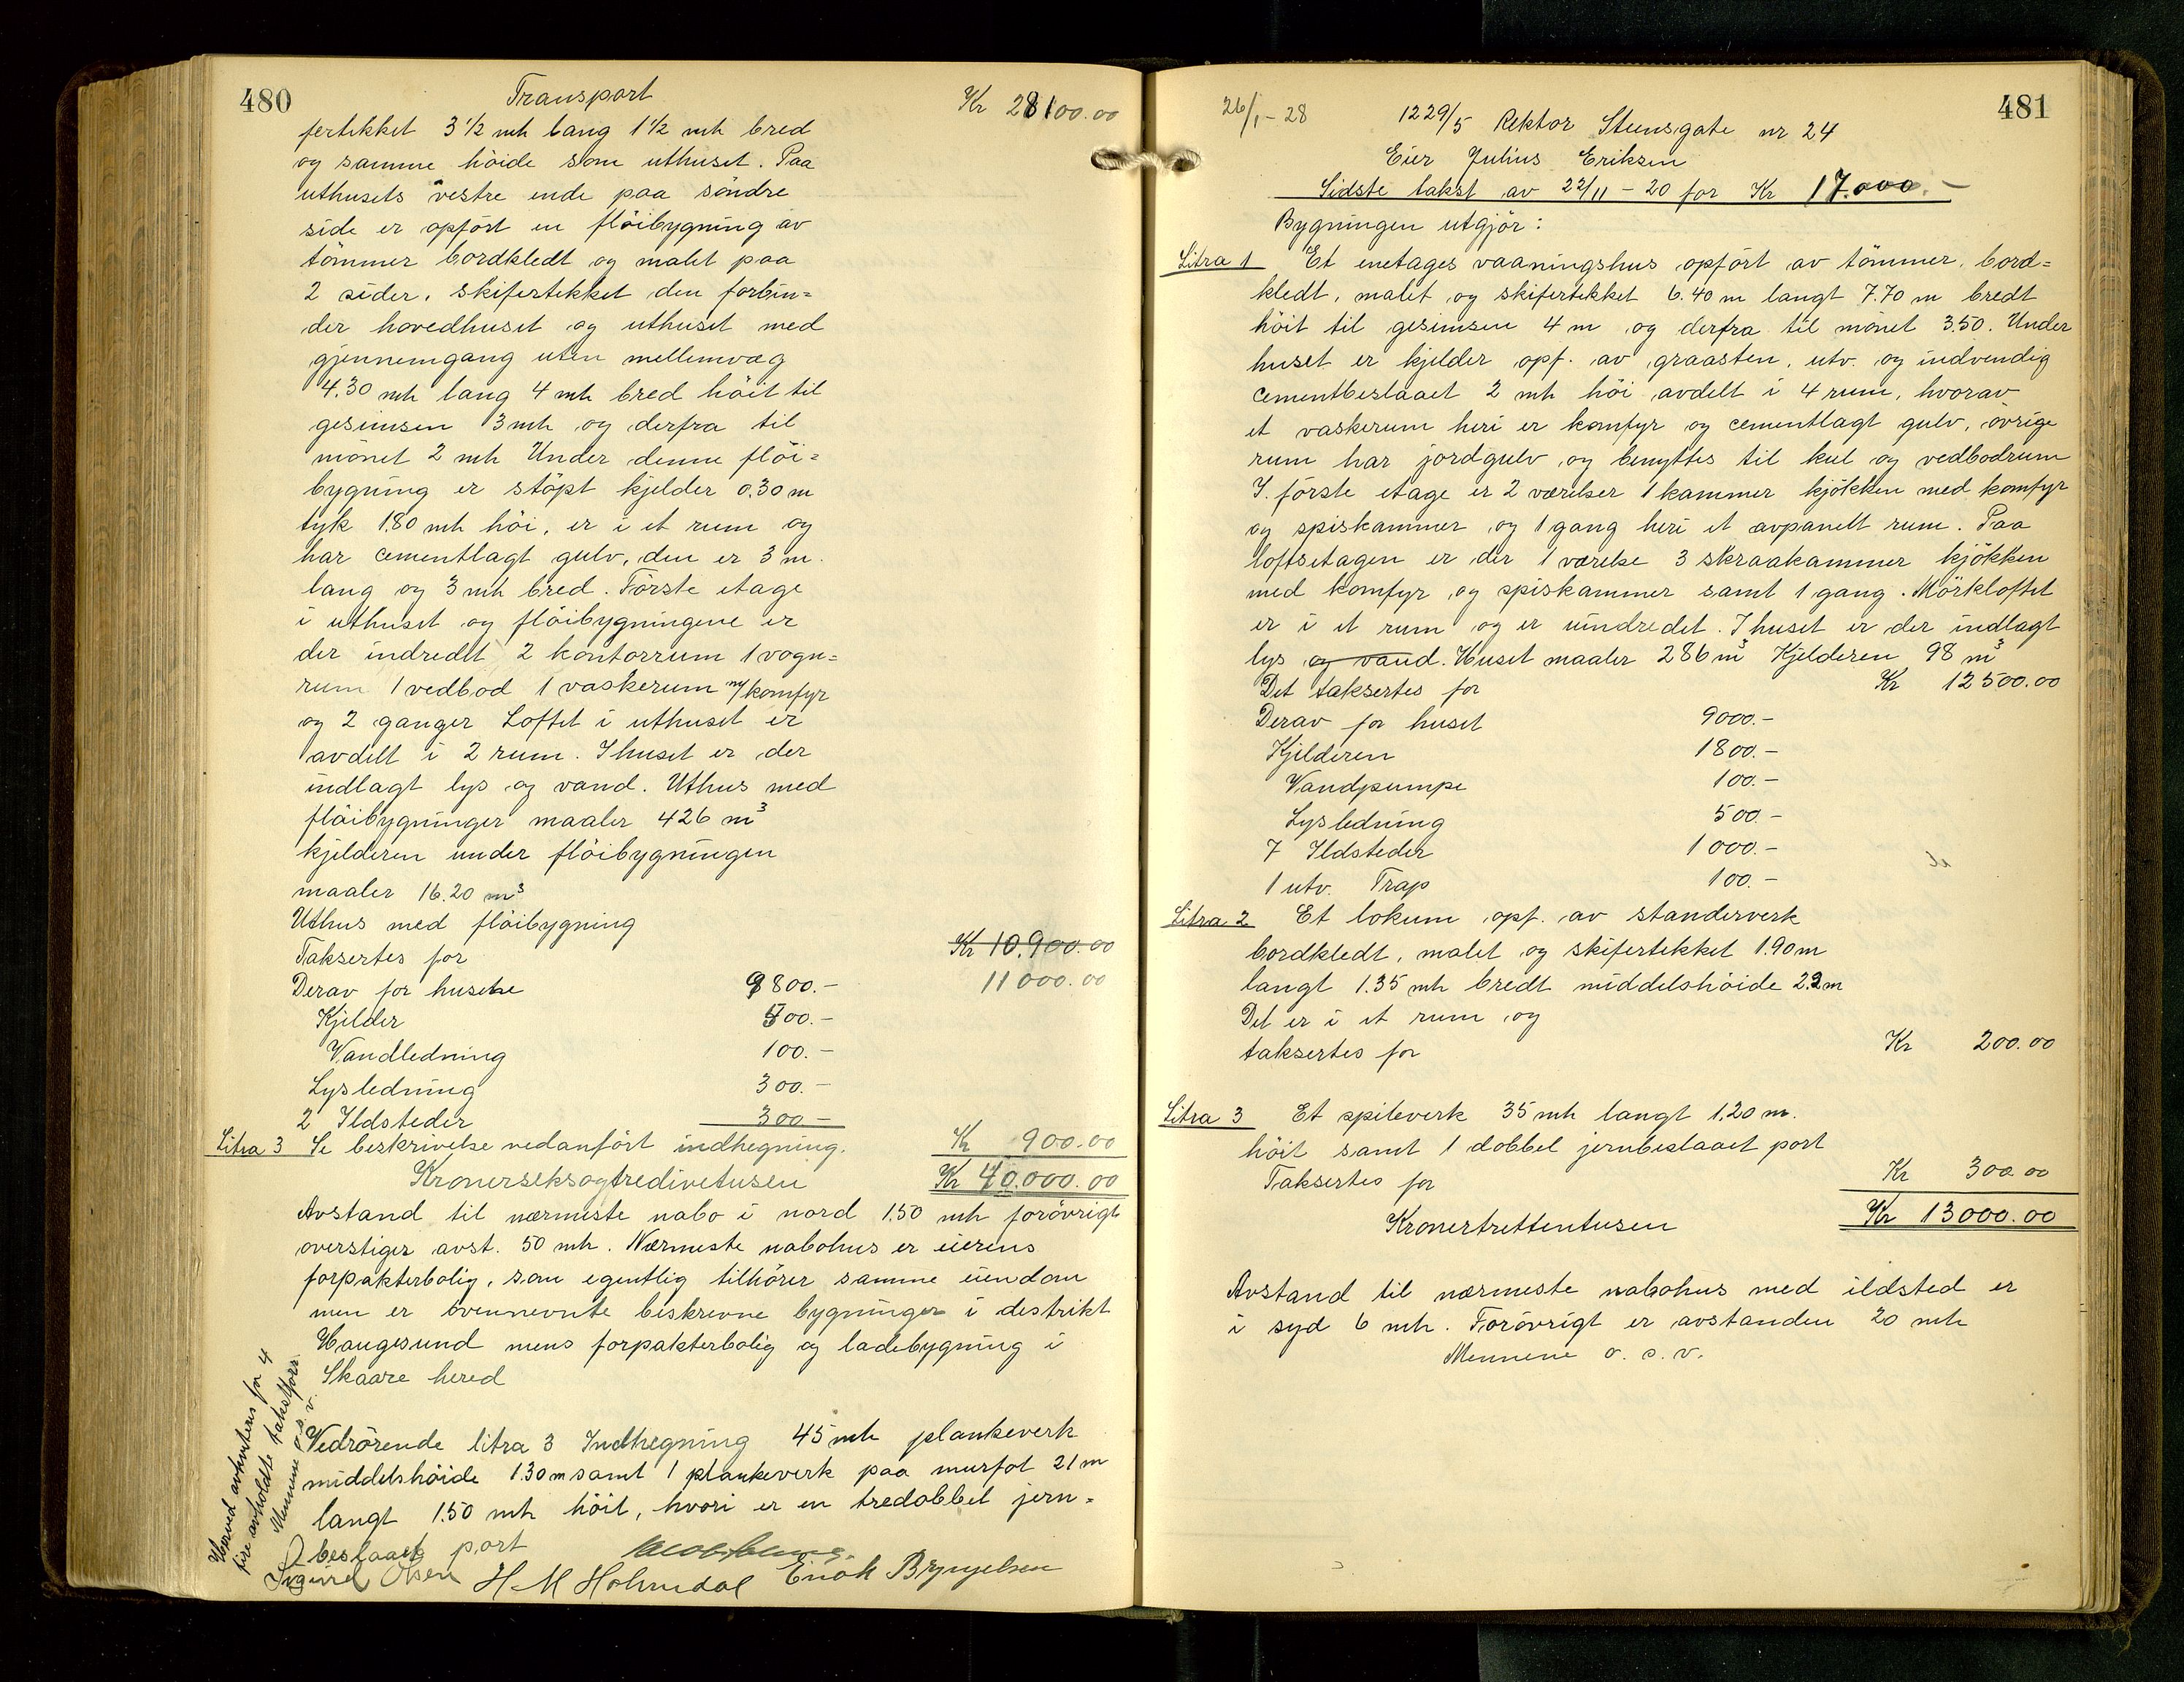 480
Transport
Kr 28100.00
fertekket 3 1/2 mtr lang 1 1/2 mtr bred
og samme höide som uthuset. Paa
uthusets vestre ende paa söndre
side er opfört en flöibygning av
tömmer bordkledt og malet paa
2 sider, skifertekket den forbin=
der hovedhuset og uthuset med
gjennemgang uten mellemvæg
4.30 mtr lang 4 mtr bred höit til
gesimsen 3 mtr og derfra til
mönet 2 mtr Under denne flöi=
bygning er stöpt kjelder 0.30 m
tyk 1.80 mtr höi, er i et rum og
har cementlagt gulv, den er 3 m.
lang og 3 mtr bred. Förste etage
i uthuset og flöibygningene er
der indredet 2 kontorrum 1 vogn=
rum 1 vedbod 1 vaskerum m/komfyr
og 2 ganger Loftet i uthuset er
avdelt i 2 rum. I huset er der
indlagt lys og vand. Uthus med
flöibygninger maaler 426 m³
kjelderen under flöibygningen
maaler 16.20 m³
Uthus med flöibygning
Taksertes for Kr 10.900.00
Derav for husene 9800.- 11000.00
Kjelder 500.-
Vandledning 100.-
Lysledning 300.-
2 Ildsteder 300-
Litra 3 Se beskrivelse nedanfört indhegning. Kr 900.00
Kronerseksogtredivetusen Kr 40.000.00
Avstand til nærmeste nabo i nord 1.50 mtr forövrigt
overstiger avst. 50 mtr. Nærmeste nabohus er eierens
forpakterbolig, som egentlig tilhörer samme eiendom
men er ovennevnte beskrevne bygninger i distrikt
Haugesund mens forpakterbolig og ladebygning i
Skaare hered
Vedrörende litra 3 Indhegning 45 mtr plankeverk
middelshöide 1.30 m samt 1 plankeverk paa murfot 21 m
langt 1.50 mtr höit, hvori er en tredobbel jern=
beslaaet port
Herved avkviteres for 4
fire avholdte takstforr.
Mennene o.s.v.
Sigurd Olsen H M Holmedal Enok Brynjelsen
481
26/1-28
1229/5 Rektor Steensgate nr 24
Eier Julius Eriksen
Sidste takst av 22/11-20 for Kr 17.000.-
Bygningen utgjör:
Litra 1 Et enetages vaaningshus opfört av tömmer, bord=
kledt, malet og skifertekket 6.40 m langt 7.70 m bredt
höit til gesimsen 4 m og derfra til mönet 3.50. Under
huset er kjelder opf. av graasten, utv. og indvendig
cementbeslaaet 2 mtr höi avdelt i 4 rum, hvorav
et vaskerum heri er komfyr og cementlagt gulv, övrige
rum har jordgulv og benyttes til kul og vedbodrum
I förste etage er 2 værelser 1 kammer kjökken med komfyr
og spiskammer og 1 gang heri et avpanelt rum. Paa
loftsetagen er der 1 værelse 3 skraakammer kjökken
med komfyr og spiskammer samt 1 gang. Mörkloftet
er i et rum og er uindredet. I huset er der indlagt
lys og vand. Huset maaler 286 m³ Kjelderen 98 m³
Det taksertes for Kr 12500.00
Derav for huset 9000.-
Kjelderen 1800.-
Vandpumpe 100.-
Lysledning 500.-
7 Ildsteder 1000.-
1 utv. Trap 100.-
Litra 2 Et lokum opf. av standerverk
bordkledt, malet og skifertekket 1.90 m
langt 1.35 mtr bredt middelshöide 2.2 m
Det er i et rum og
taksertes for Kr 200.00
Litra 3 Et spileverk 35 mtr langt 1.20 m.
höit samt 1 dobbel jernbeslaaet port
Taksertes for Kr 300.00
Kronertrettentusen Kr 13000.00
Avstand til nærmeste nabohus med ildsted er
i syd 6 mtr. Forövrigt er avstanden 20 mtr
Mennene o. s. v.